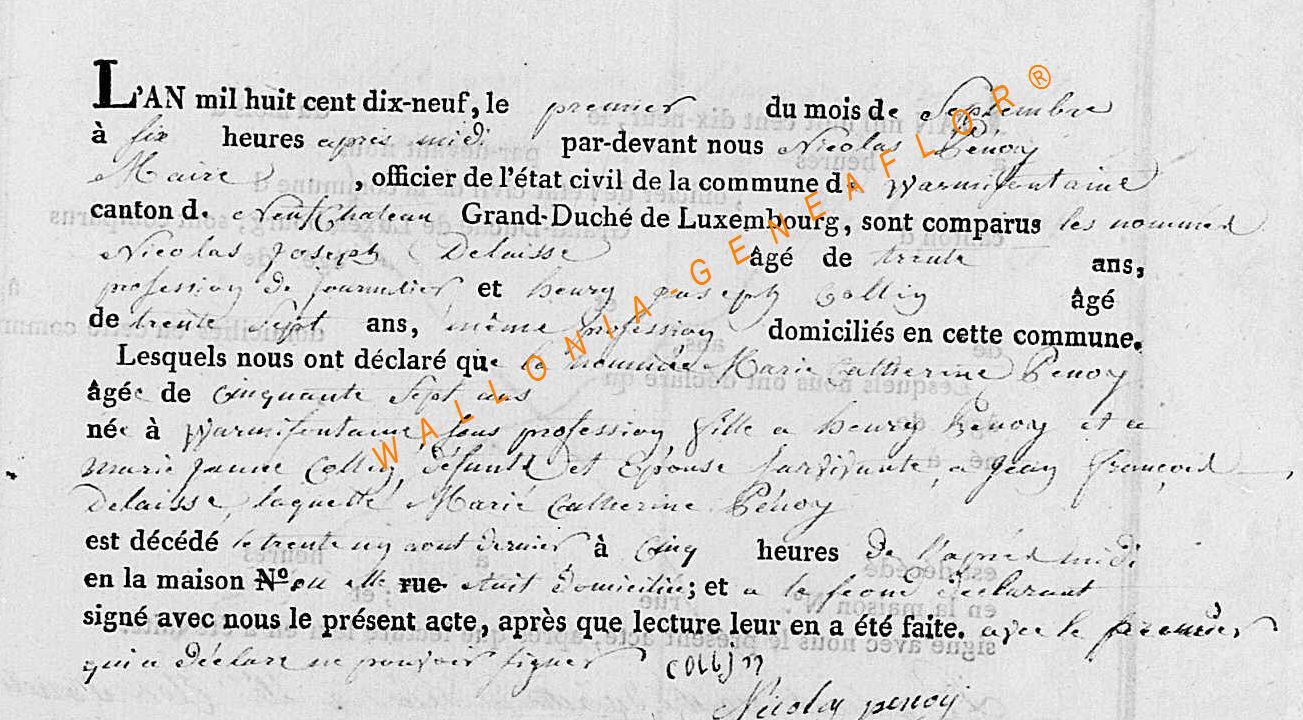 L'AN mil huit cent dix-neuf, le premier du mois de Septembre
à six heures après midi par-devant nous Nicolas Penoy
Maire , officier de l'état civil de la commune de Warmifontaine
canton de Neufchateau Grand-Duché de Luxembourg, sont comparus les nommés
Nicolas Joseph Delaisse âgé de trente ans,
profession de journalier et henry joseph Collin âgé
de trente sept ans, même profession domiciliés en cette commune.
Lesquels nous ont déclaré que la nommée Marie Catherine Penoy
âgée de cinquante sept ans
née à Warmifontaine sans profession fille a henry Penoy et a
marie jeanne Collin défunts et Epouse survivante a jean françois
Delaisse, laquelle Marie Catherine Penoy
est décédé le trente un aout dernier à cinq heures de l'après midi
en la maison N° ou elle rue etait domiciliée; et a le second declarant
signé avec nous le présent acte, après que lecture leur en a été faite. avec le premier
qui a déclaré ne pouvoir signer collin
Nicolas penoy
WALLONIA-GENEAFLOR®